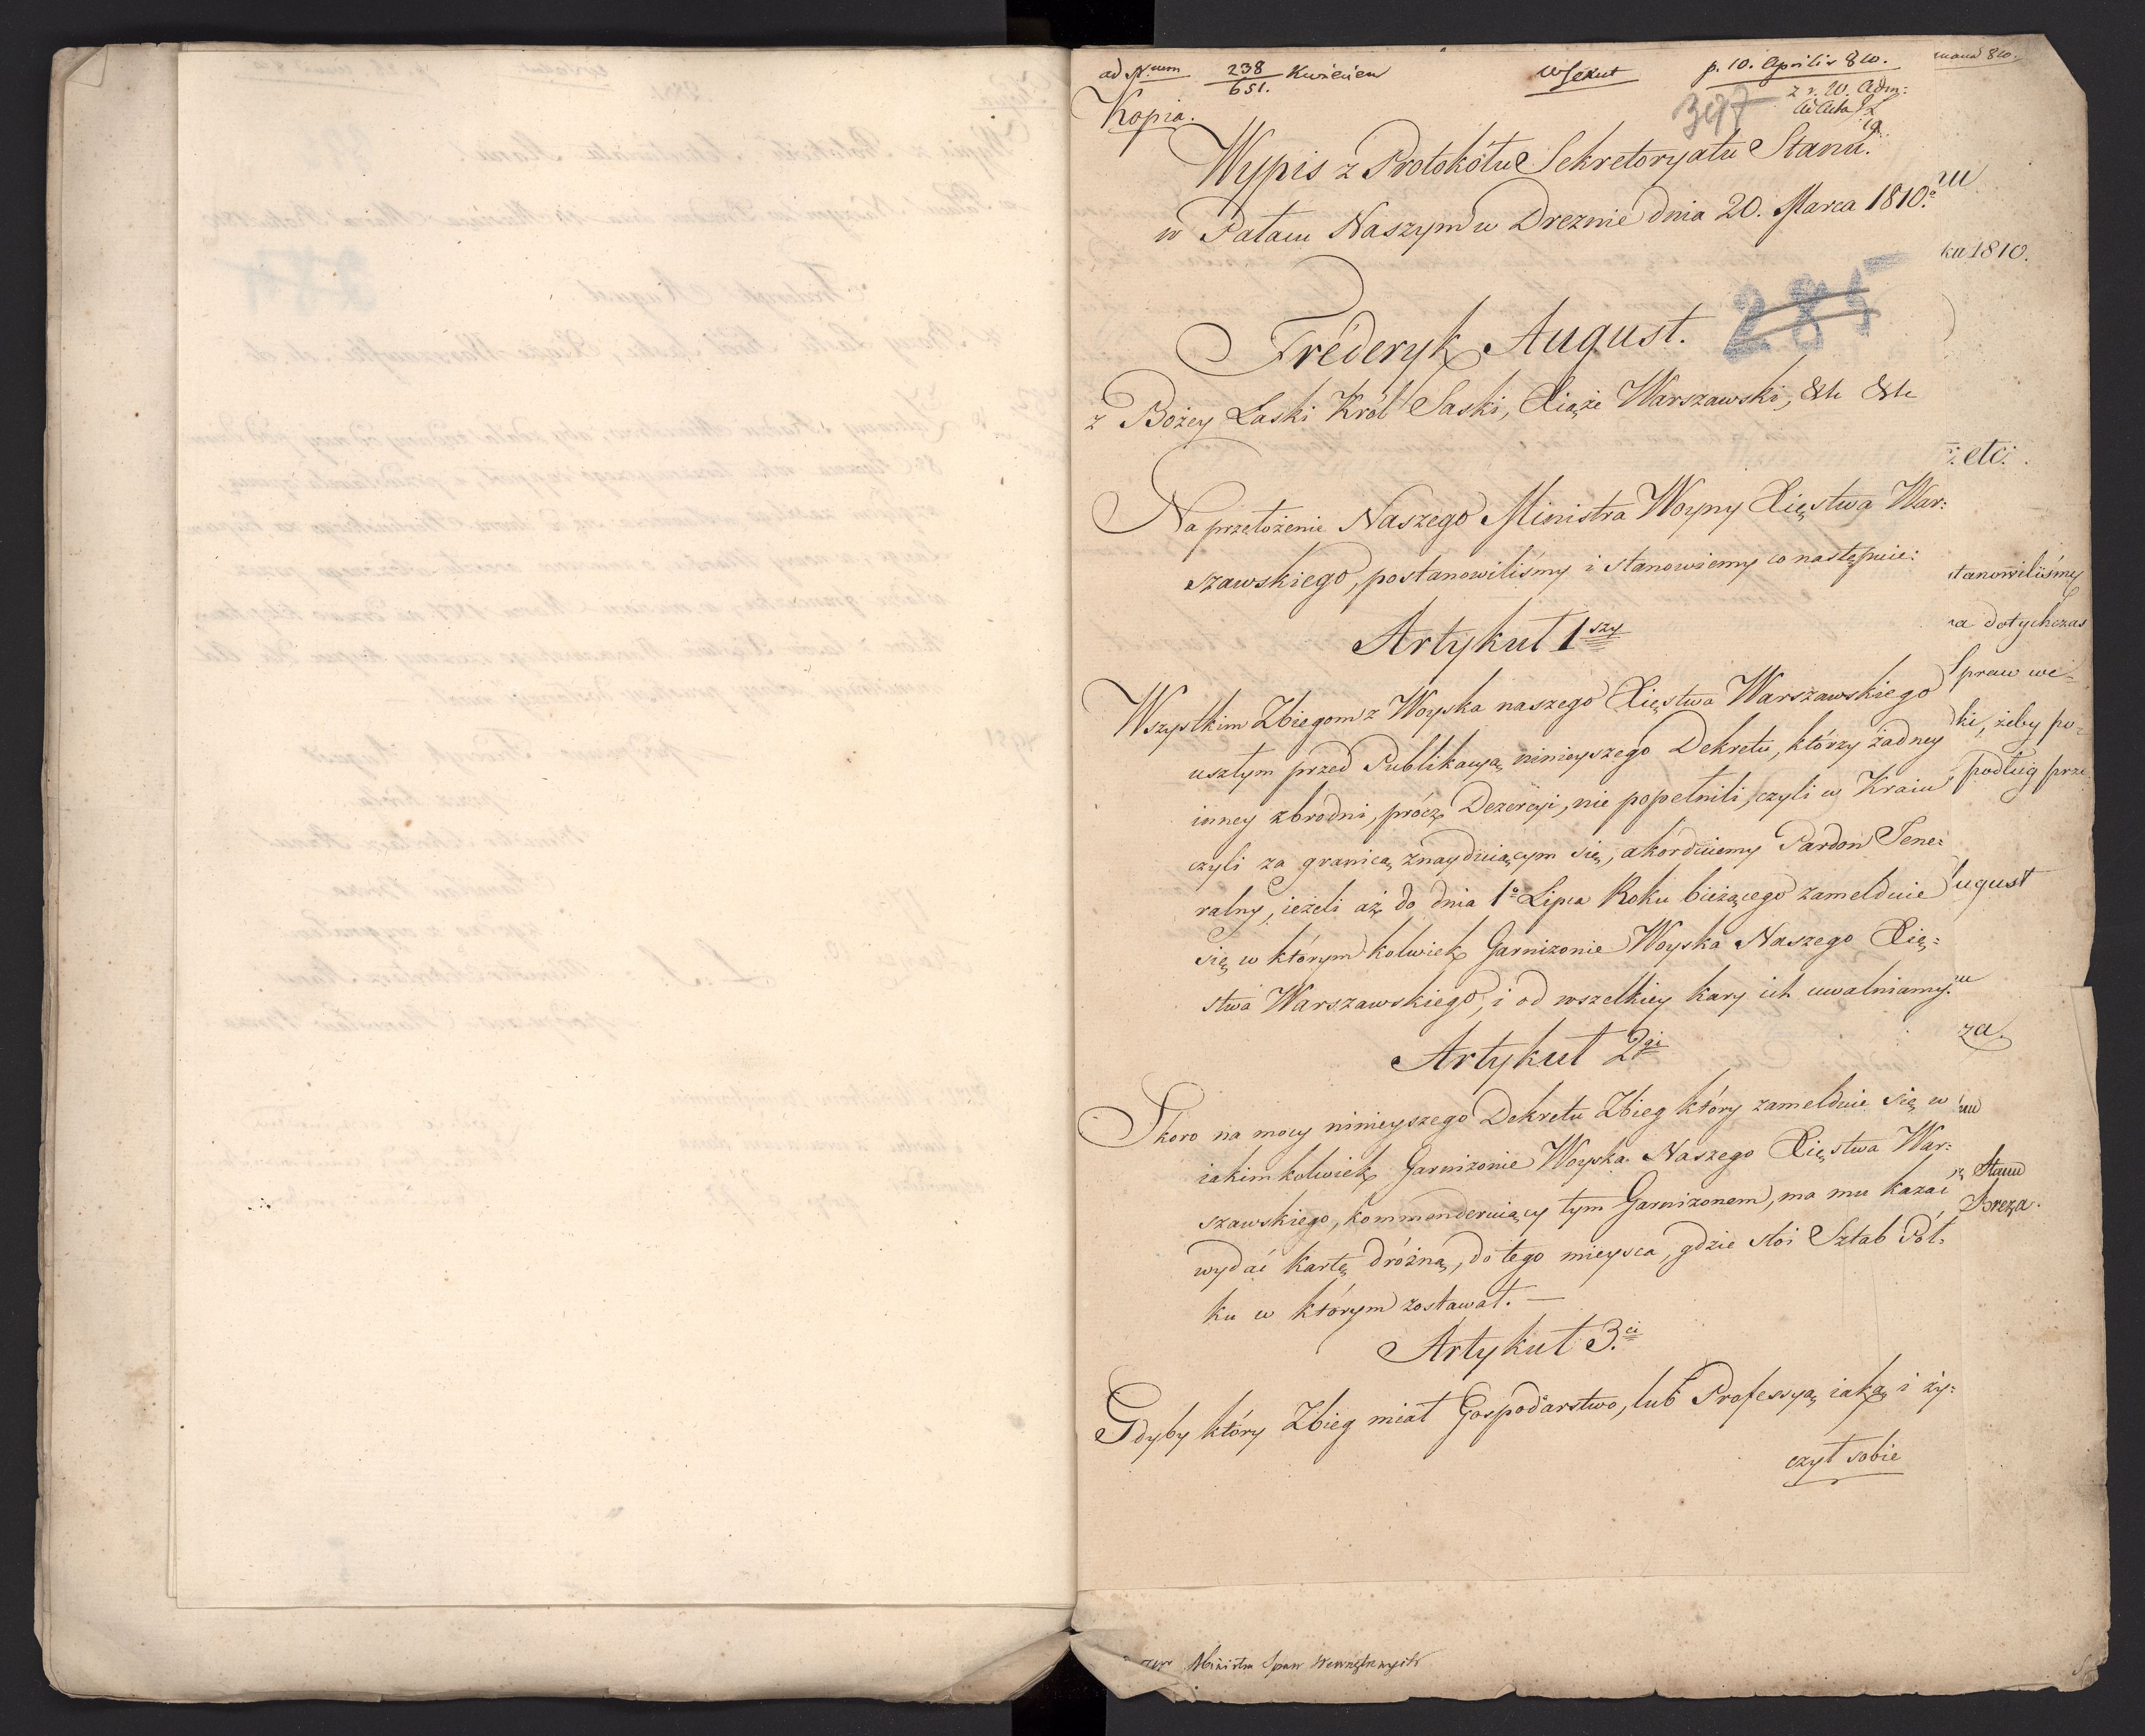 ad N.rum 238/651. Kwiecień
p. 10. Aprilis 810.
Kopia.
397
Wypis z Protokółu Sekretoryatu Stanu.
w Pałacu Naszym w Dreznie dnia 20. Marca 1810.
285
Fréderyk August.
z Bożey Łaski Król Saski, Xiąże Warszawski, &tc &tc
Na przełożenie Naszego Ministra Woyny Xięstwa War:
szawskiego, postanowiliśmy i stanowiemy co następuie:
Artykuł 1szy
Wszystkim Zbiegom z Woyska naszego Xięstwa Warszawskiego
uszłym przed Publikacyą ninieyszego Dekretu, którzy żadney
inney zbrodni, prócz Dezercyi, nie popełnili, czyli w Kraiu
czyli za granicą znayduiącym się, akorduiemy Pardon Jene:
ralny, ieżeli aż do dnia 1o Lipca Roku bieżącego zamelduie
się w którym kolwiek Garnizonie Woyska Naszego Xię:
stwa Warszawskiego, i od wszelkiey kary ich uwalniamy.
Artykuł 2gi
Skoro na mocy ninieyszego Dekretu Zbieg który zamelduie się w
iakimkolwiek Garnizonie Woyska Naszego Xięstwa War:
szawskiego, kommenderuiący tym Garnizonem, ma mu kazać
wydać kartę dróżną, do tego mieysca, gdzie stoi Sztab Pół:
ku w którym zostawał. —
Artykuł 3.ci
Gdyby który Zbieg miał Gospodarstwo, lub Professyą iaką i ży:
czył sobie
ka 1810.
etc:
stanowiliśmy
dotychczas
Spraw we:
ki, żeby po:
podług prze
ugust
za,
Stanu
Breza.
Ministra Spraw Wewnętrznych